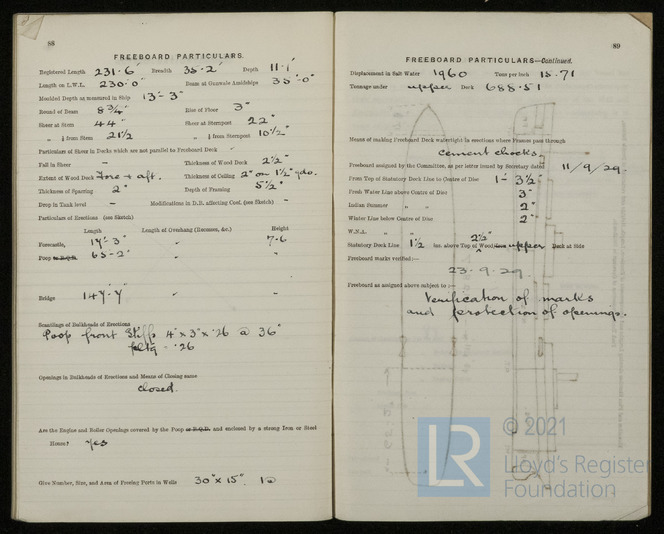 88
FREEBOARD PARTICULARS.
Registered Length 231·6' Breadth 35·2' Depth 11·1'
Length on L.W.L. 230·0" Beam at Gunwale Amidships 35'-0"
Moulded Depth as measured in Ship 13'-3"
Round of Beam 8¾" Rise of Floor 3"
Sheer at Stem 44" Sheer at Sternpost 22"
" ⅛ from Stem 21½ " ⅛ from Sternpost 10½"
Particulars of Sheer in Decks which are not parallel to Freeboard Deck
Fall in Sheer – Thickness of Wood Deck 2½"
Extent of Wood Deck Fore & aft. Thickness of Ceiling 2" on 1½" gds.
Thickness of Sparring 2" Depth of Framing 5½"
Drop in Tank level – Modifications in D.B. affecting Coef. (see Sketch) –
Particulars of Erections (see Sketch)
Length Length of Overhang (Recesses, &c.) Height
Forecastle, 14'-3" " 7-6
Poop or R.Q.D. 65-2' "
Bridge 147'-4" " "
Scantlings of Bulkheads of Erections
Poop front Stiffs 4" x 3" x ·26 @ 36"
pltg - ·26
Openings in Bulkheads of Erections and Means of Closing same
Closed.
Are the Engine and Boiler Openings covered by the Poop or R.Q.D. and enclosed by a strong Iron or Steel
House? Yes
Give Number, Size, and Area of Freeing Ports in Wells 30" x 15".
89
FREEBOARD PARTICULARS—Continued.
Displacement in Salt Water 1960 Tons per inch 15·71
Tonnage under upper Deck 688·51
Means of making Freeboard Deck watertight in erections where Frames pass through
cement chocks.
Freeboard assigned by the Committee, as per letter issued by Secretary dated 11/9/29.
From Top of Statutory Deck Line to Centre of Disc 1'-3½"
Fresh Water Line above Centre of Disc 3"
Indian Summer " " 2"
Winter Line below Centre of Disc 2"
W.N.A. " "
Statutory Deck Line 1½ ins. above Top of 2½" Wood upper Deck at Side
Freeboard marks verified:—
23·9·29
Freeboard as assigned above subject to :—
Verification of marks
and protection of openings.
LR © 2021
Lloyd's Register
Foundation